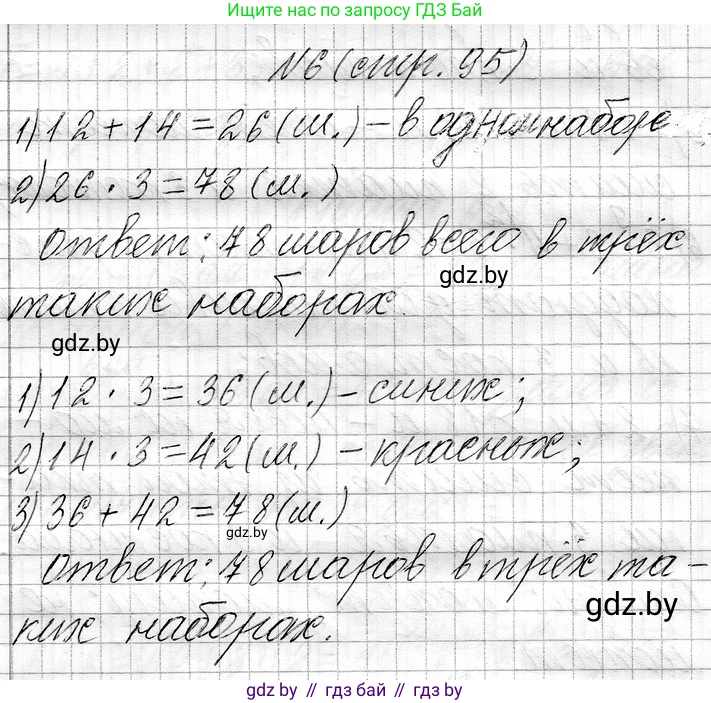 Ищите нас по запросу ГДЗ Бай
№6 (стр. 95)
1) 12 + 14 = 26 (ш.) – в одном наборе
2) 26 · 3 = 78 (ш.)
Ответ: 78 шаров всего в трёх
gdz.by
таких наборах.
gdz.by
1) 12 · 3 = 36 (ш.) – синих;
2) 14 · 3 = 42 (ш.) – красных;
3) 36 + 42 = 78 (ш.)
gdz.by
Ответ: 78 шаров в трёх та-
gdz.by
ких наборах.
gdz by // гдз бай // гдз by